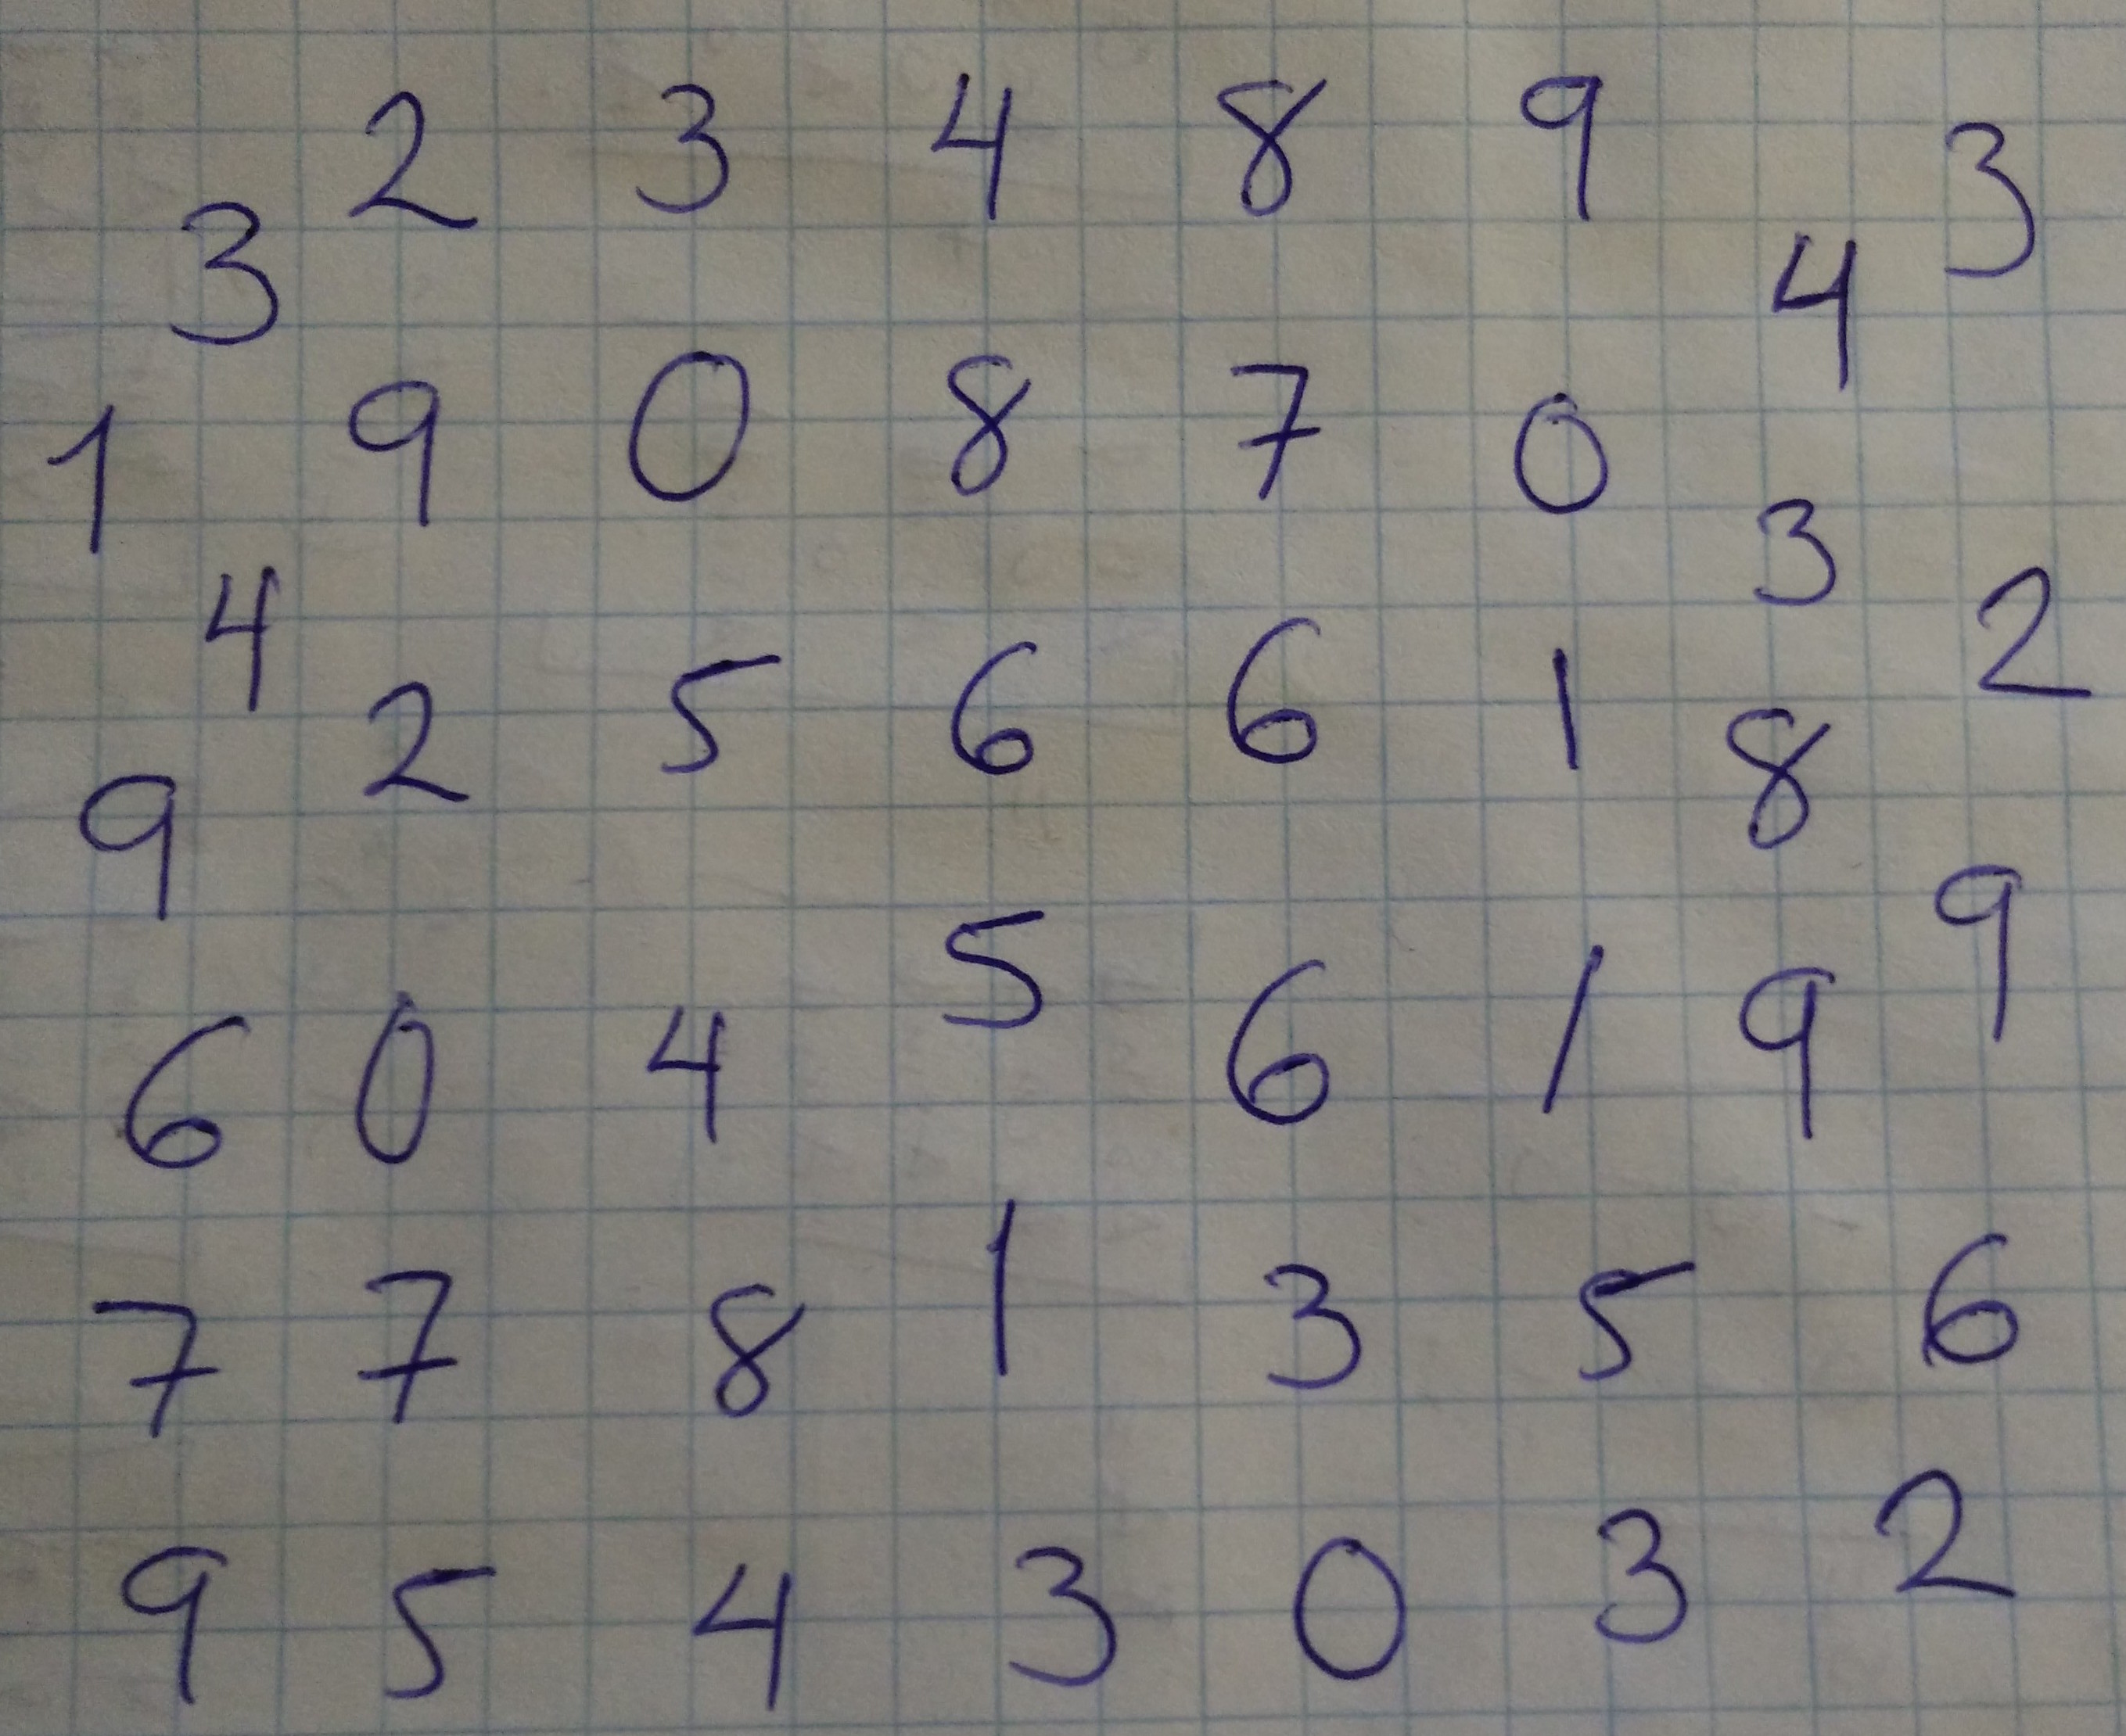 3 2 3 4 8 9 4 3
1 9 0 8 7 0 3
4 2 5 6 6 1 8 2
9 5 9
6 0 4 6 1 9
7 7 8 1 3 5 6
9 5 4 3 0 3 2